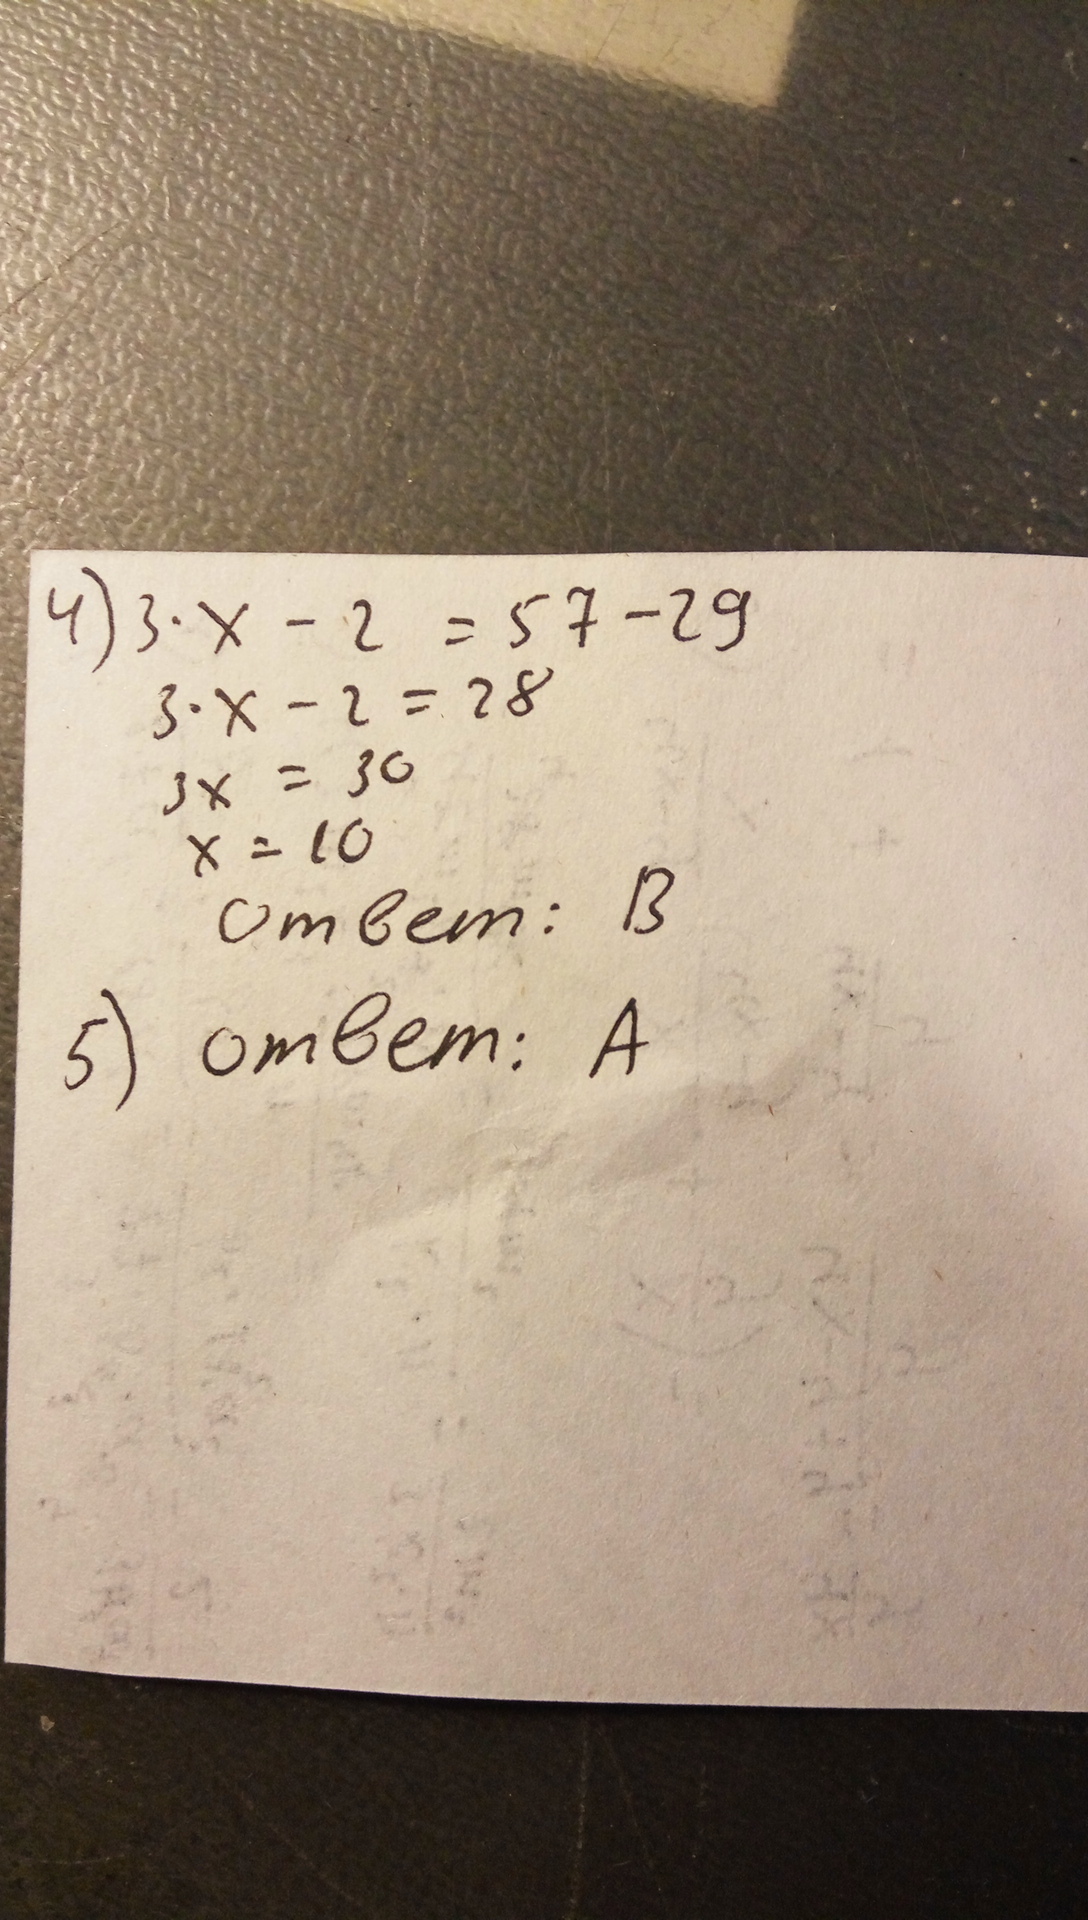 4) 3·x - 2 = 57 - 29
3·x - 2 = 28
3x = 30
x = 10
Ответ: В
5) ответ: А